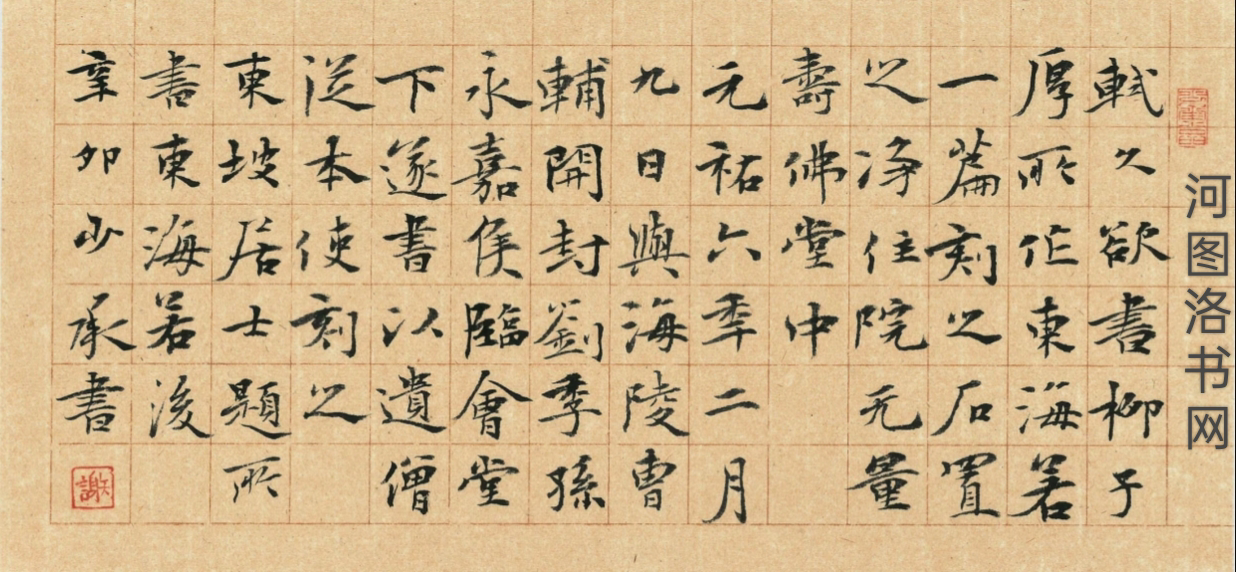 軾久欲書柳子
厚所作東海若
一篇刻之石置
之净住院无量
壽佛堂中
元祐六季二月
九日與海陵曹
輔開封劉季孫
永嘉侯臨會堂
下遂書以遺僧
從本使刻之
東坡居士題所
書東海若後
辛卯少承書
謝
河图洛书网